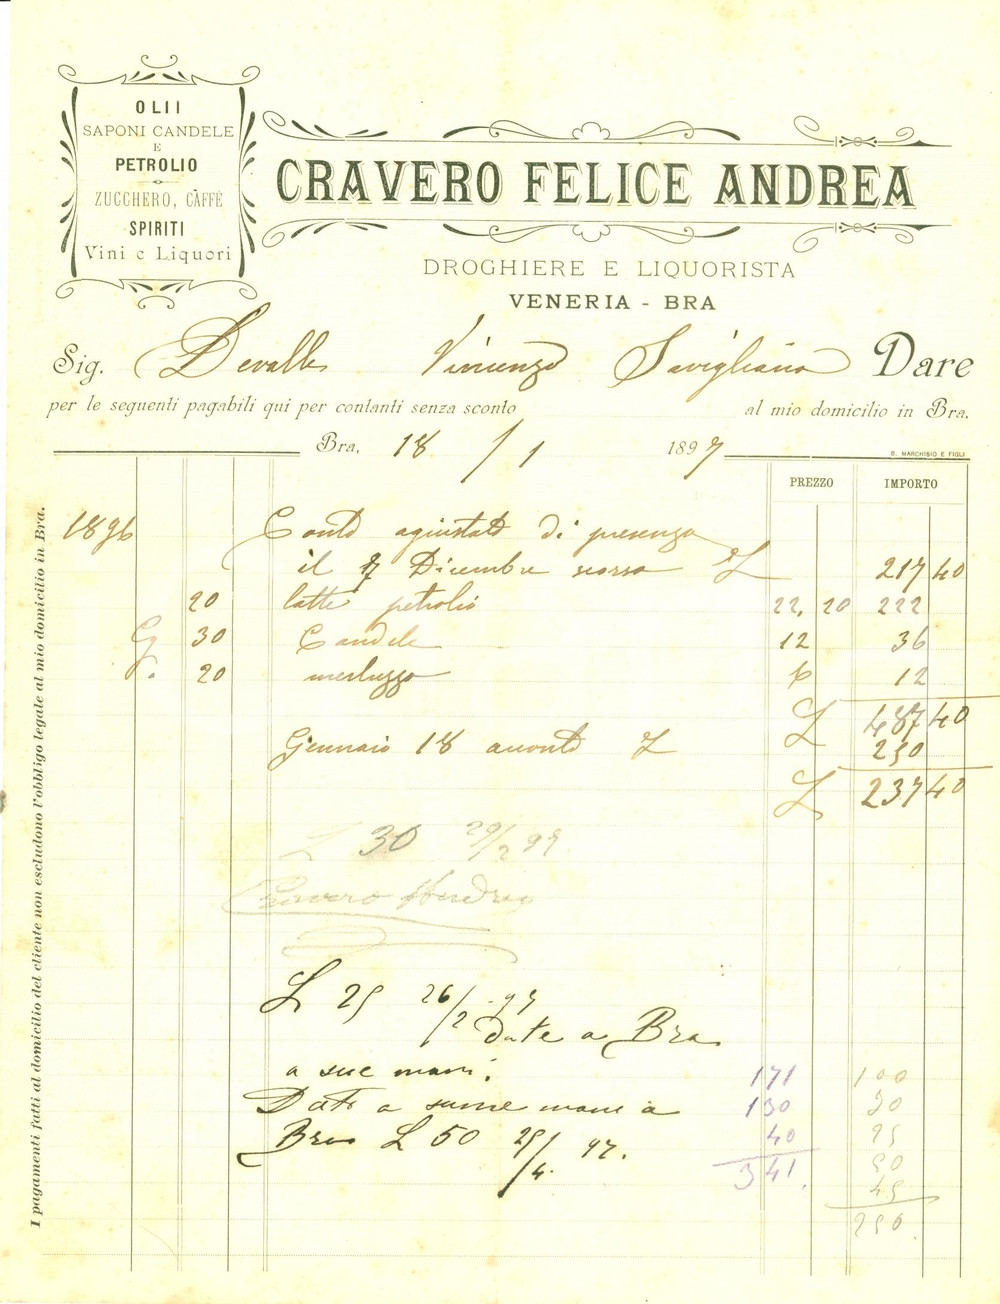 OLII
SAPONI CANDELE
E
PETROLIO
ZUCCHERO, CAFFÈ
SPIRITI
Vini e Liquori
CRAVERO FELICE ANDREA
DROGHIERE E LIQUORISTA
VENERIA - BRA
Sig. Devalle Vincenzo Savigliano Dare
per le seguenti pagabili qui per contanti senza sconto al mio domicilio in Bra.
Bra, 18/1 1897
B. MARCHISIO E FIGLI
PREZZO IMPORTO
1896 Conto agiustato di presenza
il 7 Dicembre scorso L 217 40
20 latte petrolio 22, 20 222
Cg 30 Candele 12 36
" 20 merluzzo 6 12
L 487 40
Gennaio 18 acconto L 250
L 237 40
L 30 29/2 97
Cravero Andrea
L 25 26/2 - 97
date a Bra
a sue mani. 171 100
Dato a sume mani a 130 30
Bra L 50 25/4 97. 40 25
341. 50
45
250
I pagamenti fatti al domicilio del cliente non escludono l'obbligo legale al mio domicilio in Bra.